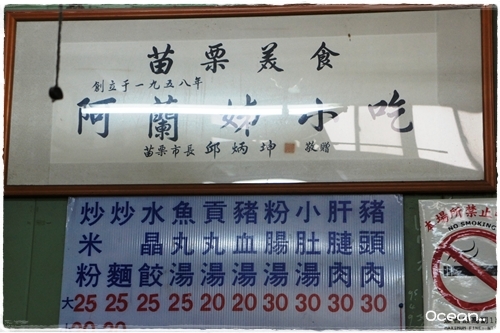 苗栗美食
創立于一九五八年
阿蘭姊小吃
苗栗市長 邱炳坤 敬贈
炒米粉
炒麵
水晶餃
魚丸湯
貢丸湯
豬血湯
粉腸湯
小肚湯
肝腱肉
豬頭肉
大 25 25 25 25 20 20 30 30 30 30
本場所禁止
NO SMOKING
Ocean...